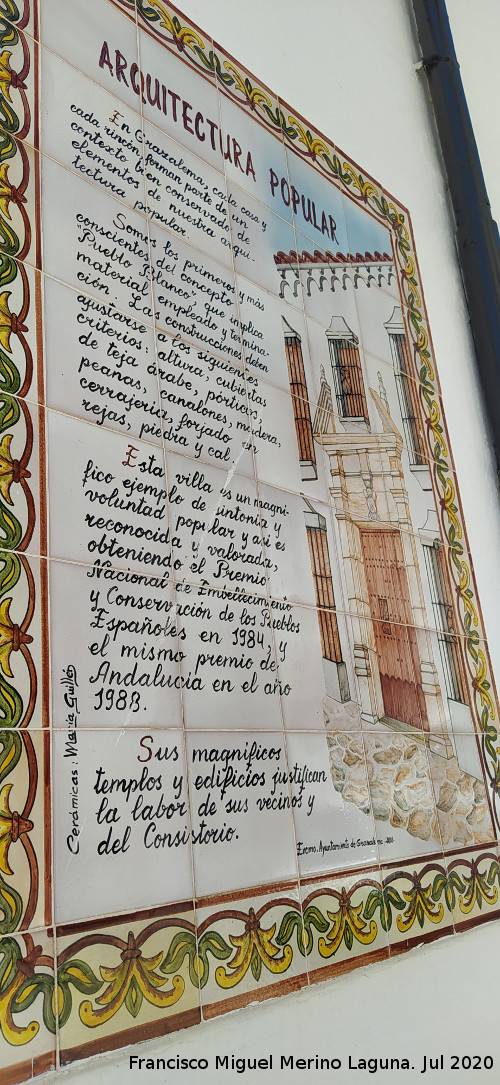 ARQUITECTURA POPULAR
En Grazalema, cada casa y
cada rincón forman parte de un
contexto bien conservado de
elementos de nuestra arqui-
tectura popular.
Somos los primeros y más
conscientes del concepto
"Pueblo Blanco" que implica
material empleado y termina-
ción. Las construcciones deben
ajustarse a los siguientes
criterios: altura, cubiertas
de teja árabe, pórticos,
peanas, canalones, madera,
cerrajería, forjado en
rejas, piedra y cal.
Esta villa es un magní-
fico ejemplo de sintonía y
voluntad popular y así es
reconocida y valorada,
obteniendo el Premio
Nacional de Embellecimiento
y Conservación de los Pueblos
Españoles en 1984, y
el mismo premio de
Andalucía en el año
1988.
Sus magníficos
templos y edificios justifican
la labor de sus vecinos y
del Consistorio.
Cerámicas: María Guillén
Excmo. Ayuntamiento de Grazalema
Francisco Miguel Merino Laguna. Jul 2020